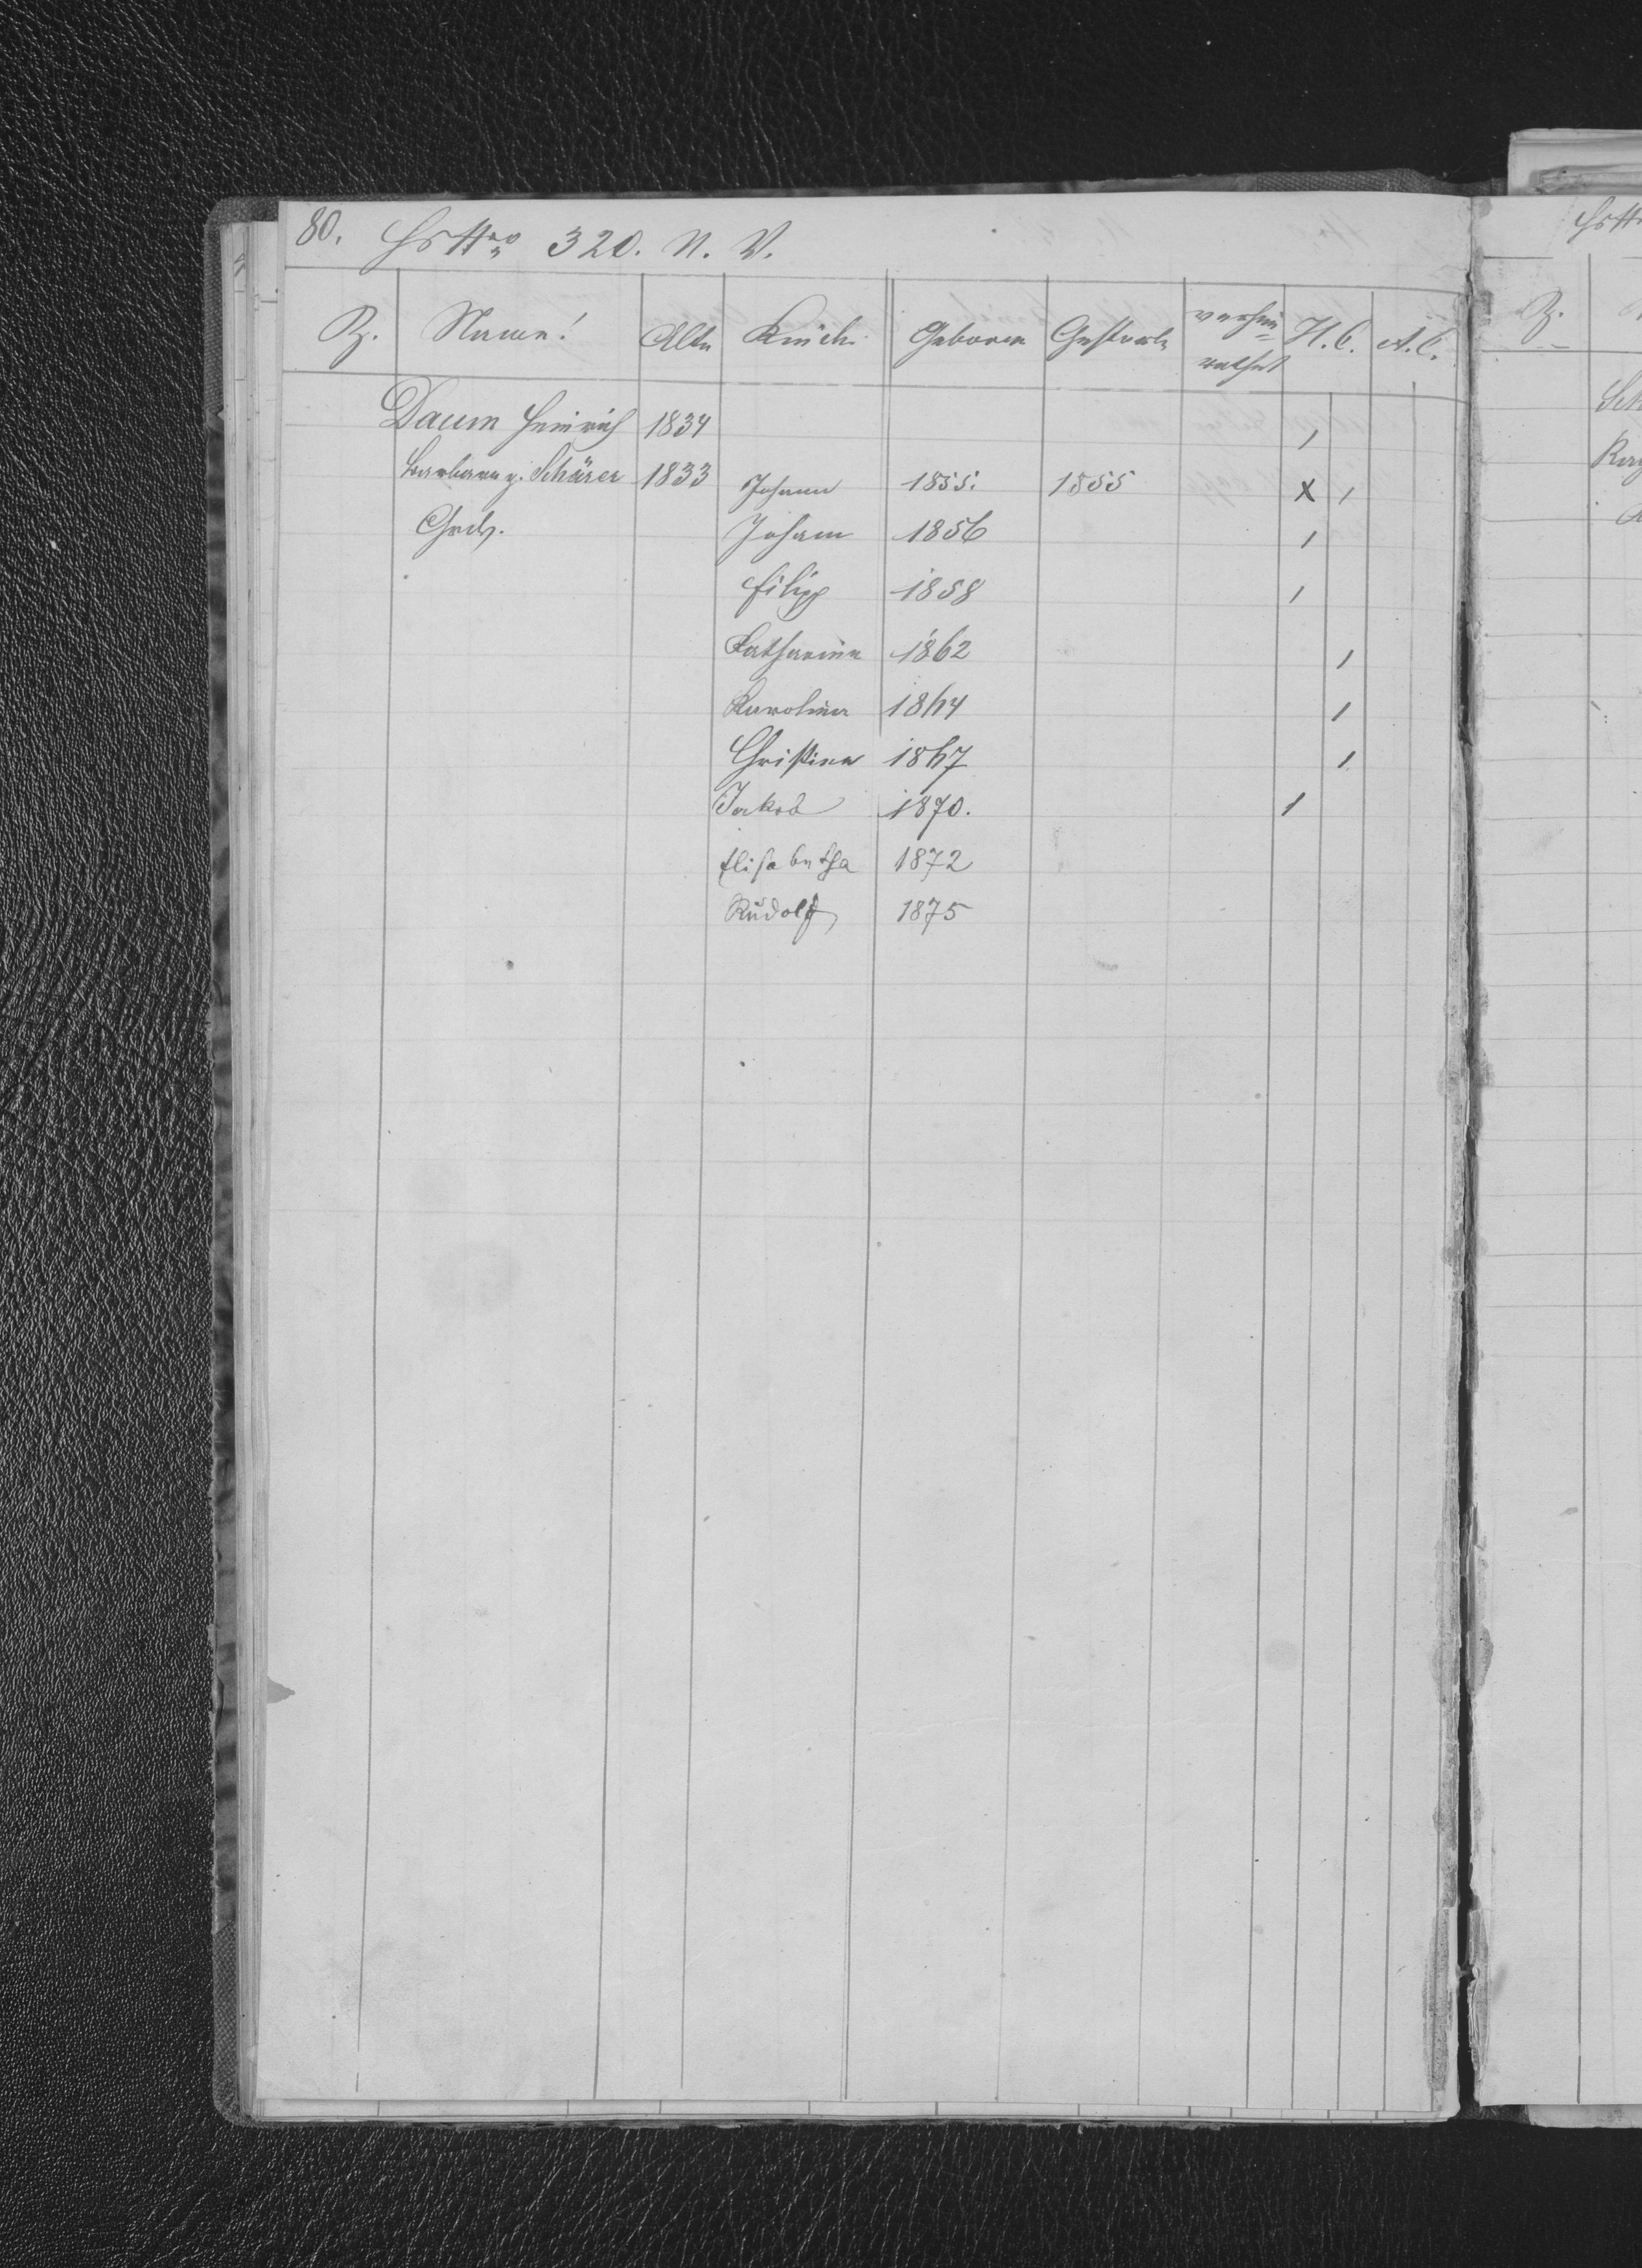 80. HsNro 320. N. V.
Z. Name! Alte Kinder Geboren Gestorb. verhei= H. C. A. C.
rathet
Daum Heinrich 1834
Barbara g. Schärer 1833 Johann 1855. 1855 X
Johann 1856
Filipp 1858
Katharina 1862
Karolina 1864
Christina 1867
Jakob 1870.
Elisabetha 1872
Rudolf 1875